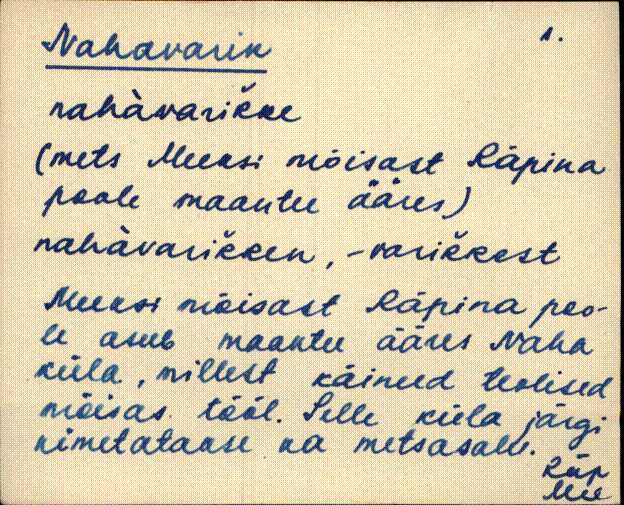 Nahavarik
1.
nahàvarikke
(mets Meeksi mõisast Räpina
poole maantee ääres)
nahàvarikken, -varikkest
Meeksi mõisast Räpina poo-
le asub maantee ääres Naha
küla, millest käineed teolised
mõisas tööl. Selle küla järgi
nimetatakse ka metsasalu.
Räp
Mee